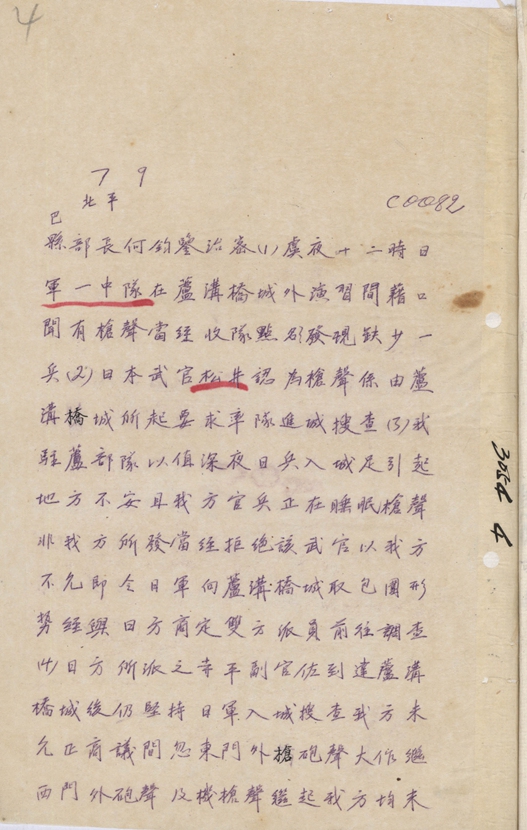 4
7 9
北平
C0082
巴
縣部長何鈞鑒治密(1)虞夜十二時日
軍一中隊在蘆溝橋城外演習間藉口
聞有槍聲當經收隊點名發現缺少一
兵(2)日本武官松井認為槍聲係由蘆
溝橋城所起要求率隊進城搜查(3)我
駐蘆部隊以值深夜日兵入城足引起
地方不安且我方官兵正在睡眠槍聲
非我方所發當經拒絕該武官以我方
不允即令日軍向蘆溝橋城取包圍形
勢經與日方商定雙方派員前往調查
(4)日方所派之寺平副官佐到達蘆溝
橋城後仍堅持日軍入城搜查我方未
允正商議間忽東門外槍砲聲大作繼
西門外砲聲及機槍聲繼起我方均未
4